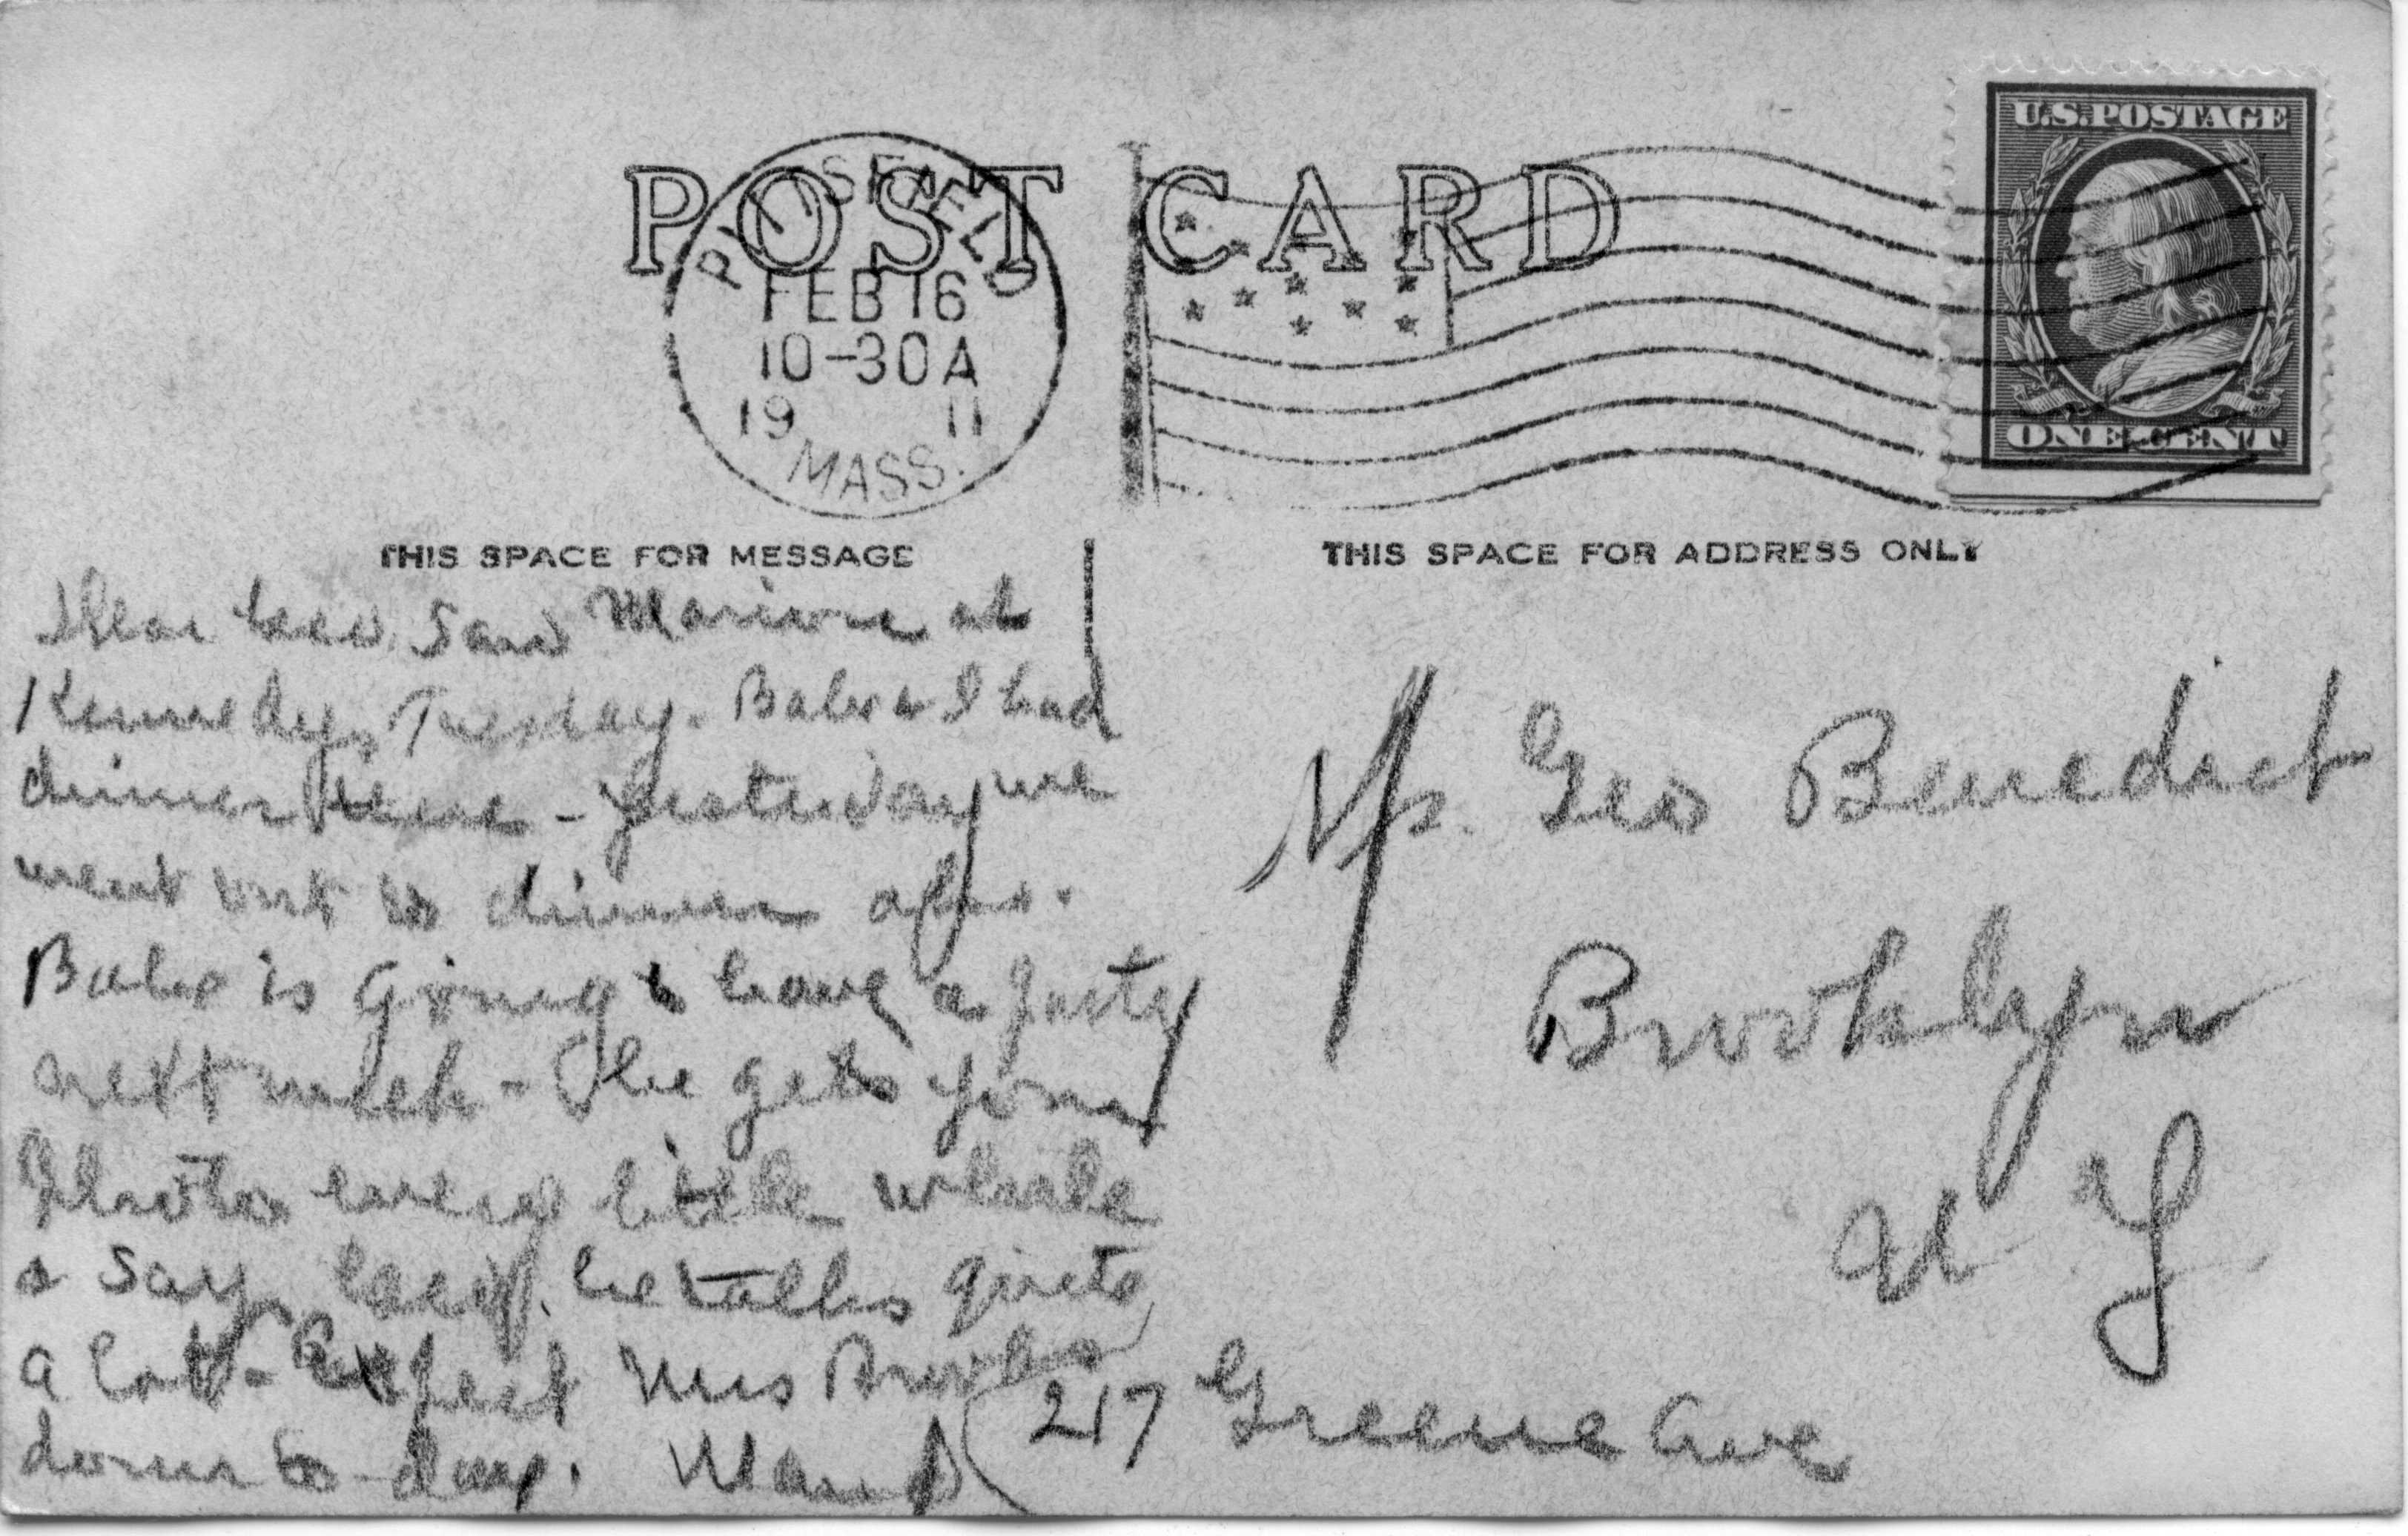 POST CARD
U.S. POSTAGE
ONE CENT
PITTSFIELD
FEB 16
10-30 A
19 11
MASS.
THIS SPACE FOR MESSAGE
THIS SPACE FOR ADDRESS ONLY
Dear saw at
Kennedys Tuesday. Babe & I had
dinner there - yesterday we
went out to dinner also.
Babe is going to have a party
next week - He gets your
Photo every little while
& says he talks quite
a lot - Expect Mrs Brooks
down to-day. Maud
Mrs. Geo Benedict
Brooklyn
N Y
217 Greene Ave